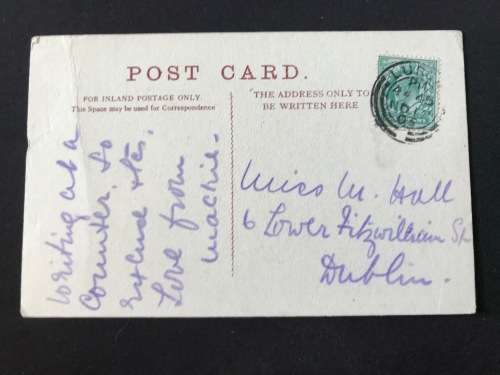 POST CARD.
FOR INLAND POSTAGE ONLY.
This Space may be used for Correspondence
THE ADDRESS ONLY TO
BE WRITTEN HERE
Writing at a
Counter, so
excuse
Love from
Miss M. Hall
6 Lower Fitzwilliam St
Dublin.